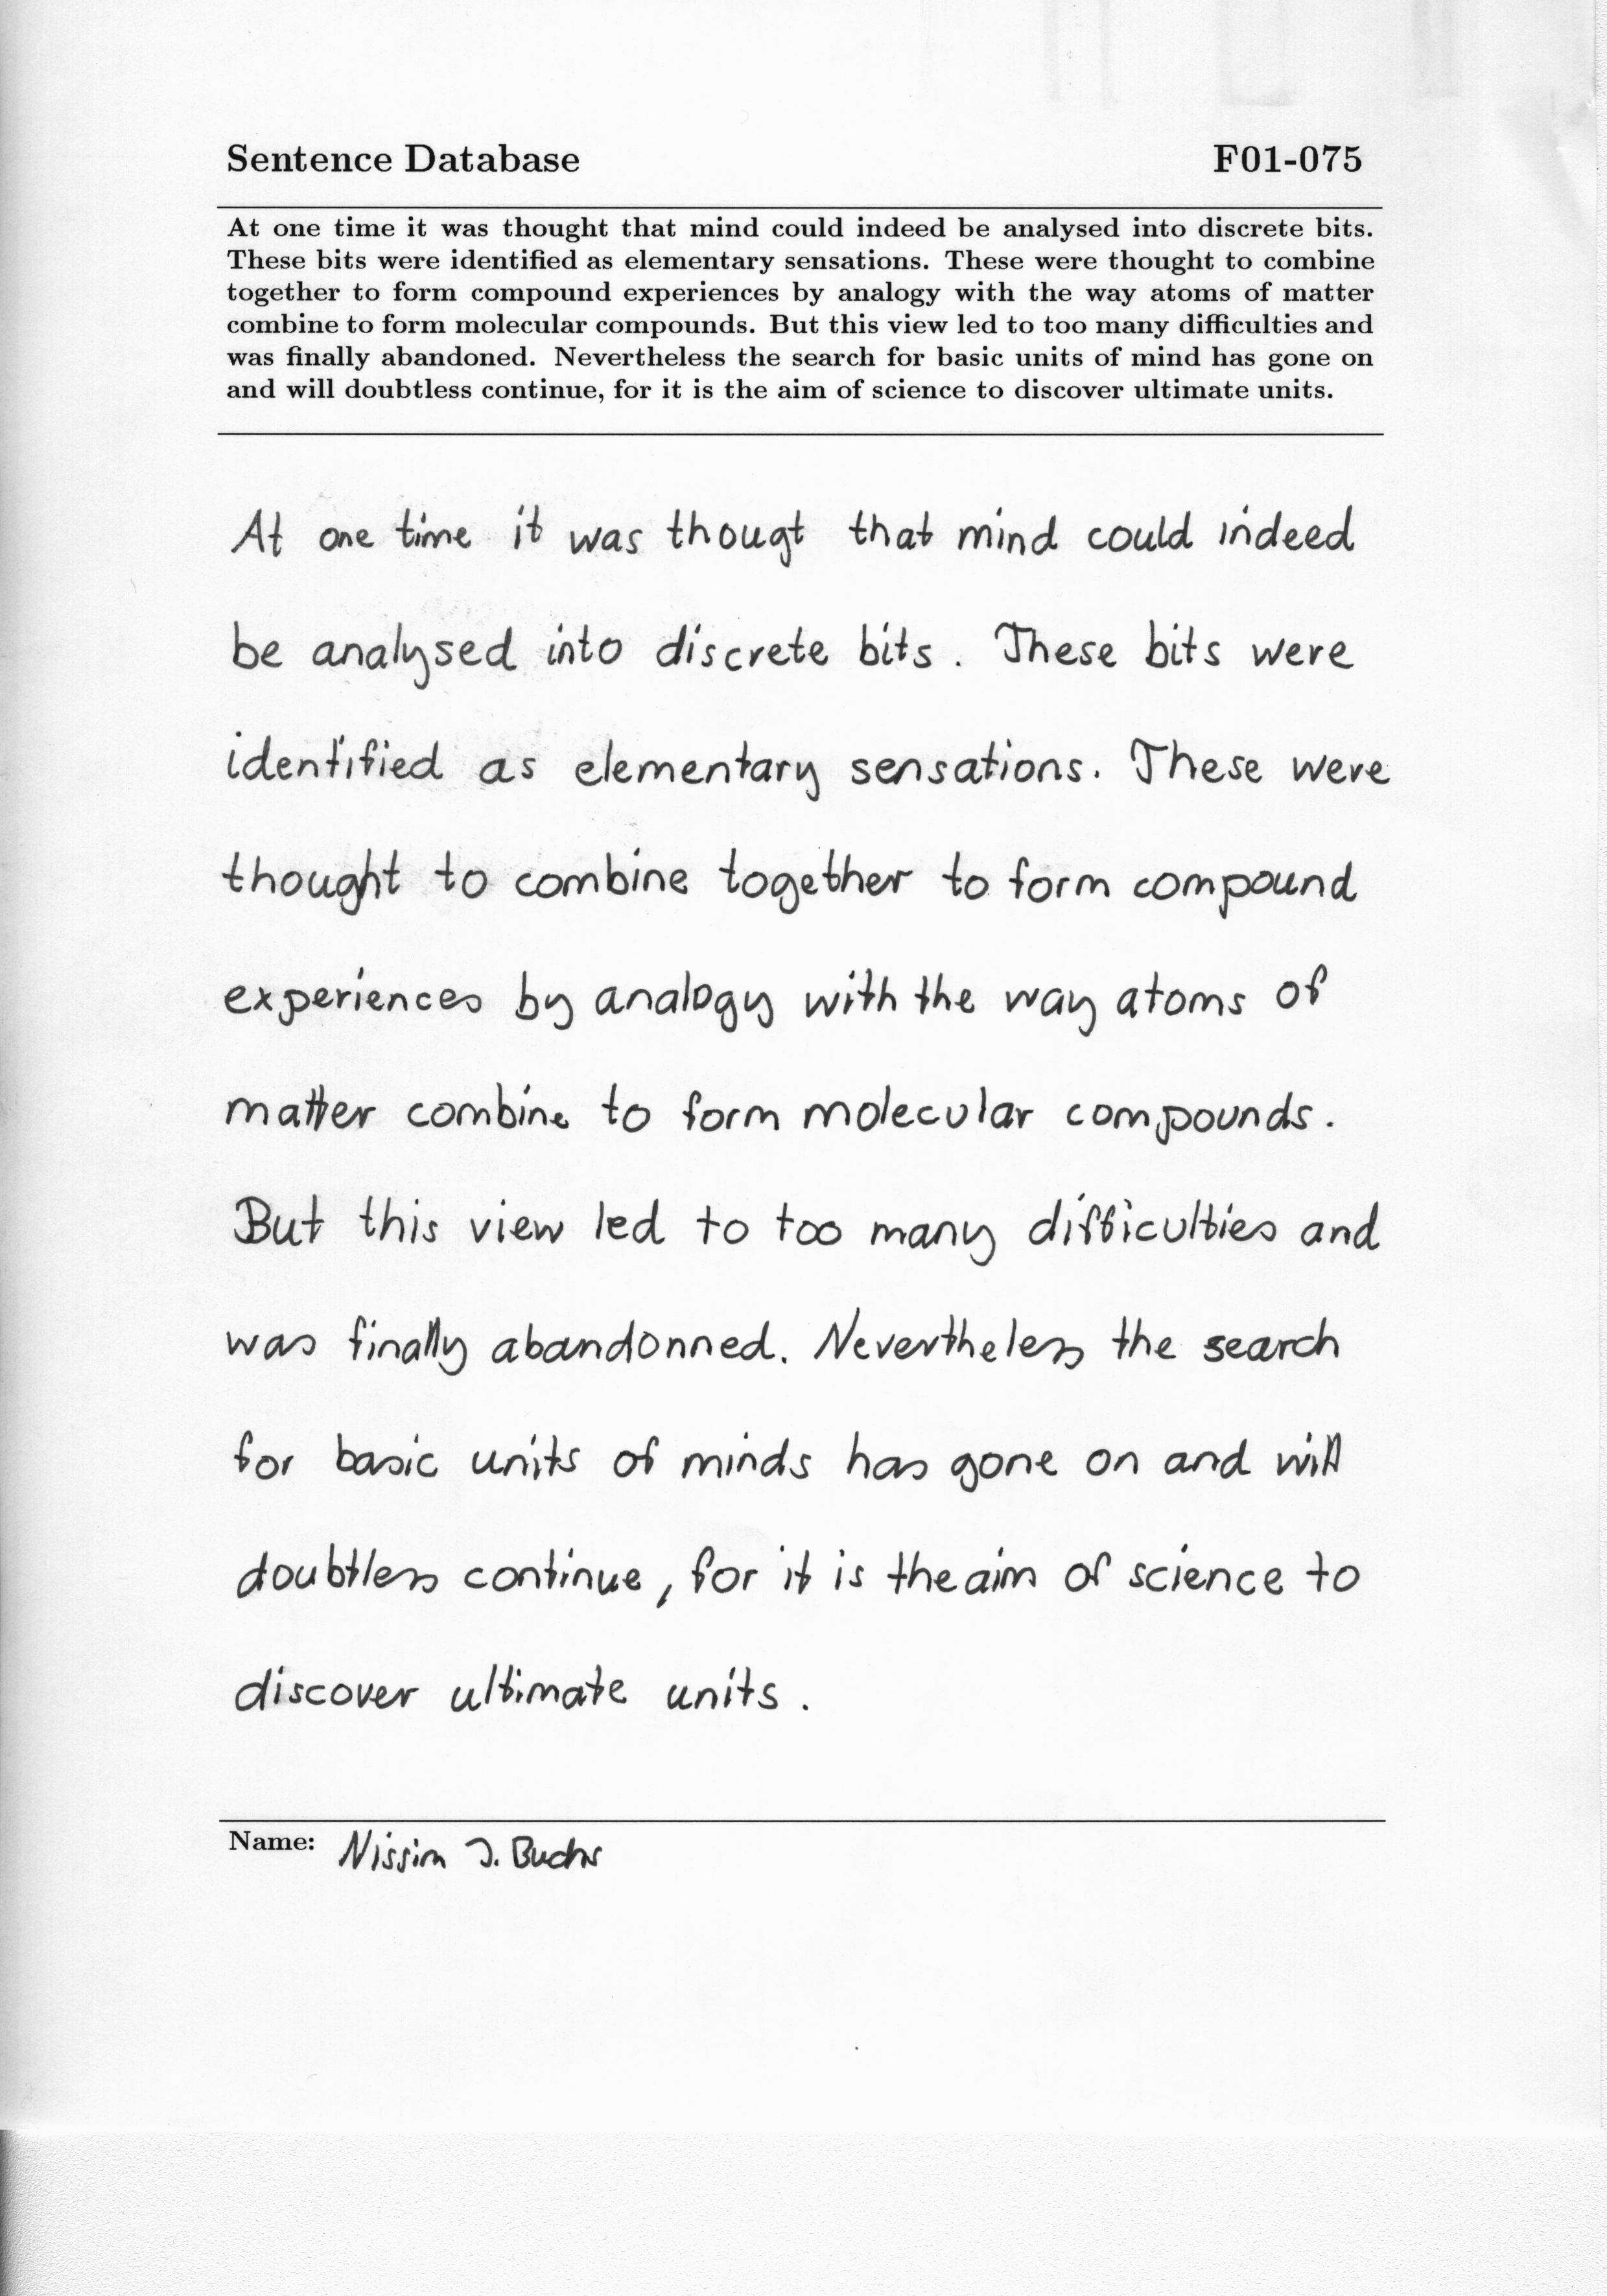 Sentence Database F01-075
At one time it was thought that mind could indeed be analysed into discrete bits.
These bits were identified as elementary sensations. These were thought to combine
together to form compound experiences by analogy with the way atoms of matter
combine to form molecular compounds. But this view led to too many difficulties and
was finally abandoned. Nevertheless the search for basic units of mind has gone on
and will doubtless continue, for it is the aim of science to discover ultimate units.
At one time it was thougt that mind could indeed
be analysed into discrete bits. These bits were
identified as elementary sensations. These were
thought to combine together to form compound
experiences by analogy with the way atoms of
matter combine to form molecular compounds.
But this view led to too many difficulties and
was finally abandonned. Nevertheless the search
for basic units of minds has gone on and will
doubtless continue, for it is the aim of science to
discover ultimate units.
Name: Nissim J. Buchs